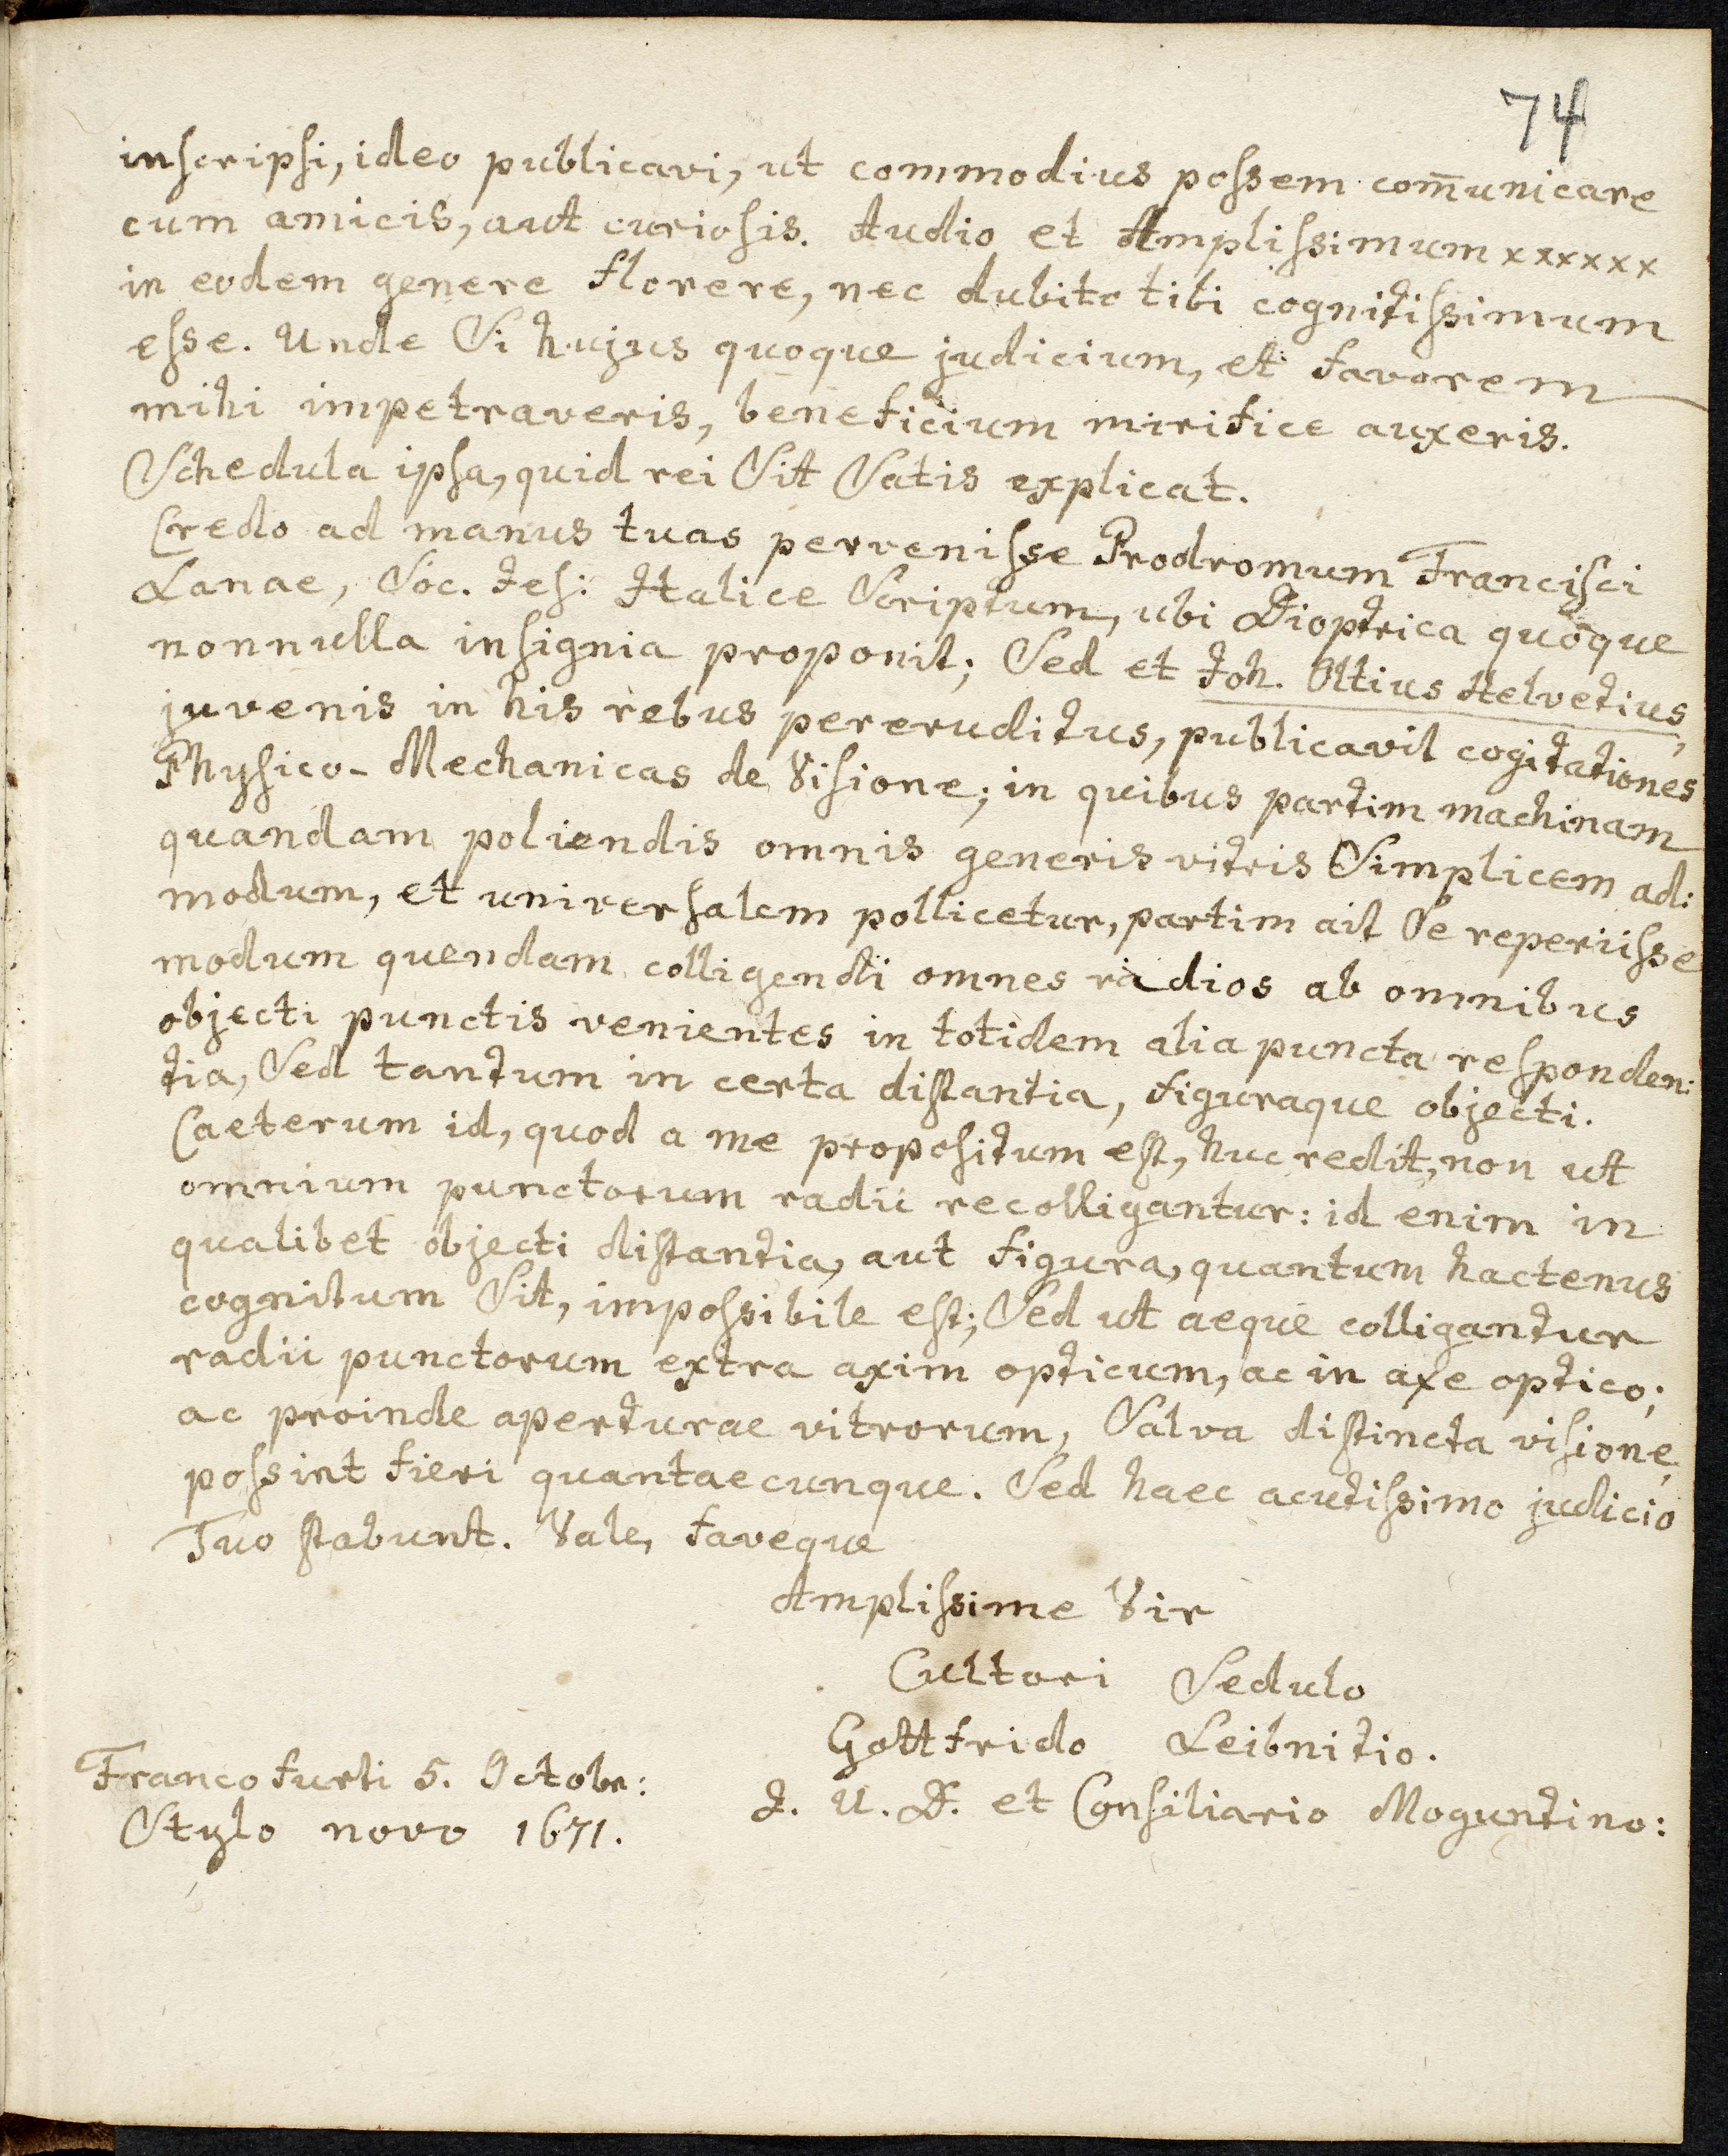 74
inscripsi, ideo publicavi, ut commodius possem com̄unicare
cum amicis, aut curiosis. Audio et Amplissimum xxxxxx
in eodem genere florere, nec dubito tibi cognitissimum
esse. Unde Si hujus quoque judicium, et favorem
mihi impetraveris, beneficium mirifice auxeris.
Schedula ipsa, quid rei Sit Satis explicat.
Credo ad manus tuas pervenisse Prodromum Francisci
Lanae, Soc. Jes: Italice Scriptum, ubi Dioptrica quoque
nonnulla insignia proponit; Sed et Joh. Ottius Helvetius,
juvenis in his rebus pereruditus, publicavit cogitationes
Physico-Mechanicas de Visione; in quibus partim machinam
quandam poliendis omnis generis vitris Simplicem ad:
modum, et universalem pollicetur, partim ait Se reperiisse
modum quendam colligendi omnes radios ab omnibus
objecti punctis venientes in totidem alia puncta responden:
tia, Sed tantum in certa distantia, figuraque objecti.
Caeterum id, quod a me propositum est, huc redit, non ut
omnium punctorum radii recolligantur: id enim in
qualibet objecti distantia, aut figura, quantum hactenus
cognitum Sit, impossibile est; Sed ut aeque colligantur
radii punctorum extra axim opticum, ac in axe optico;
ac proinde aperturae vitrorum, Salva distincta visione,
possint fieri quantaecunque. Sed haec acutissimo judicio
Tuo stabunt. Vale, faveque
Amplissime Vir
Cultori Sedulo
Gottfrido Leibnitio.
J. U. D. et Consiliario Moguntino:
Francofurti 5. Octobr:
Stylo novo 1671.